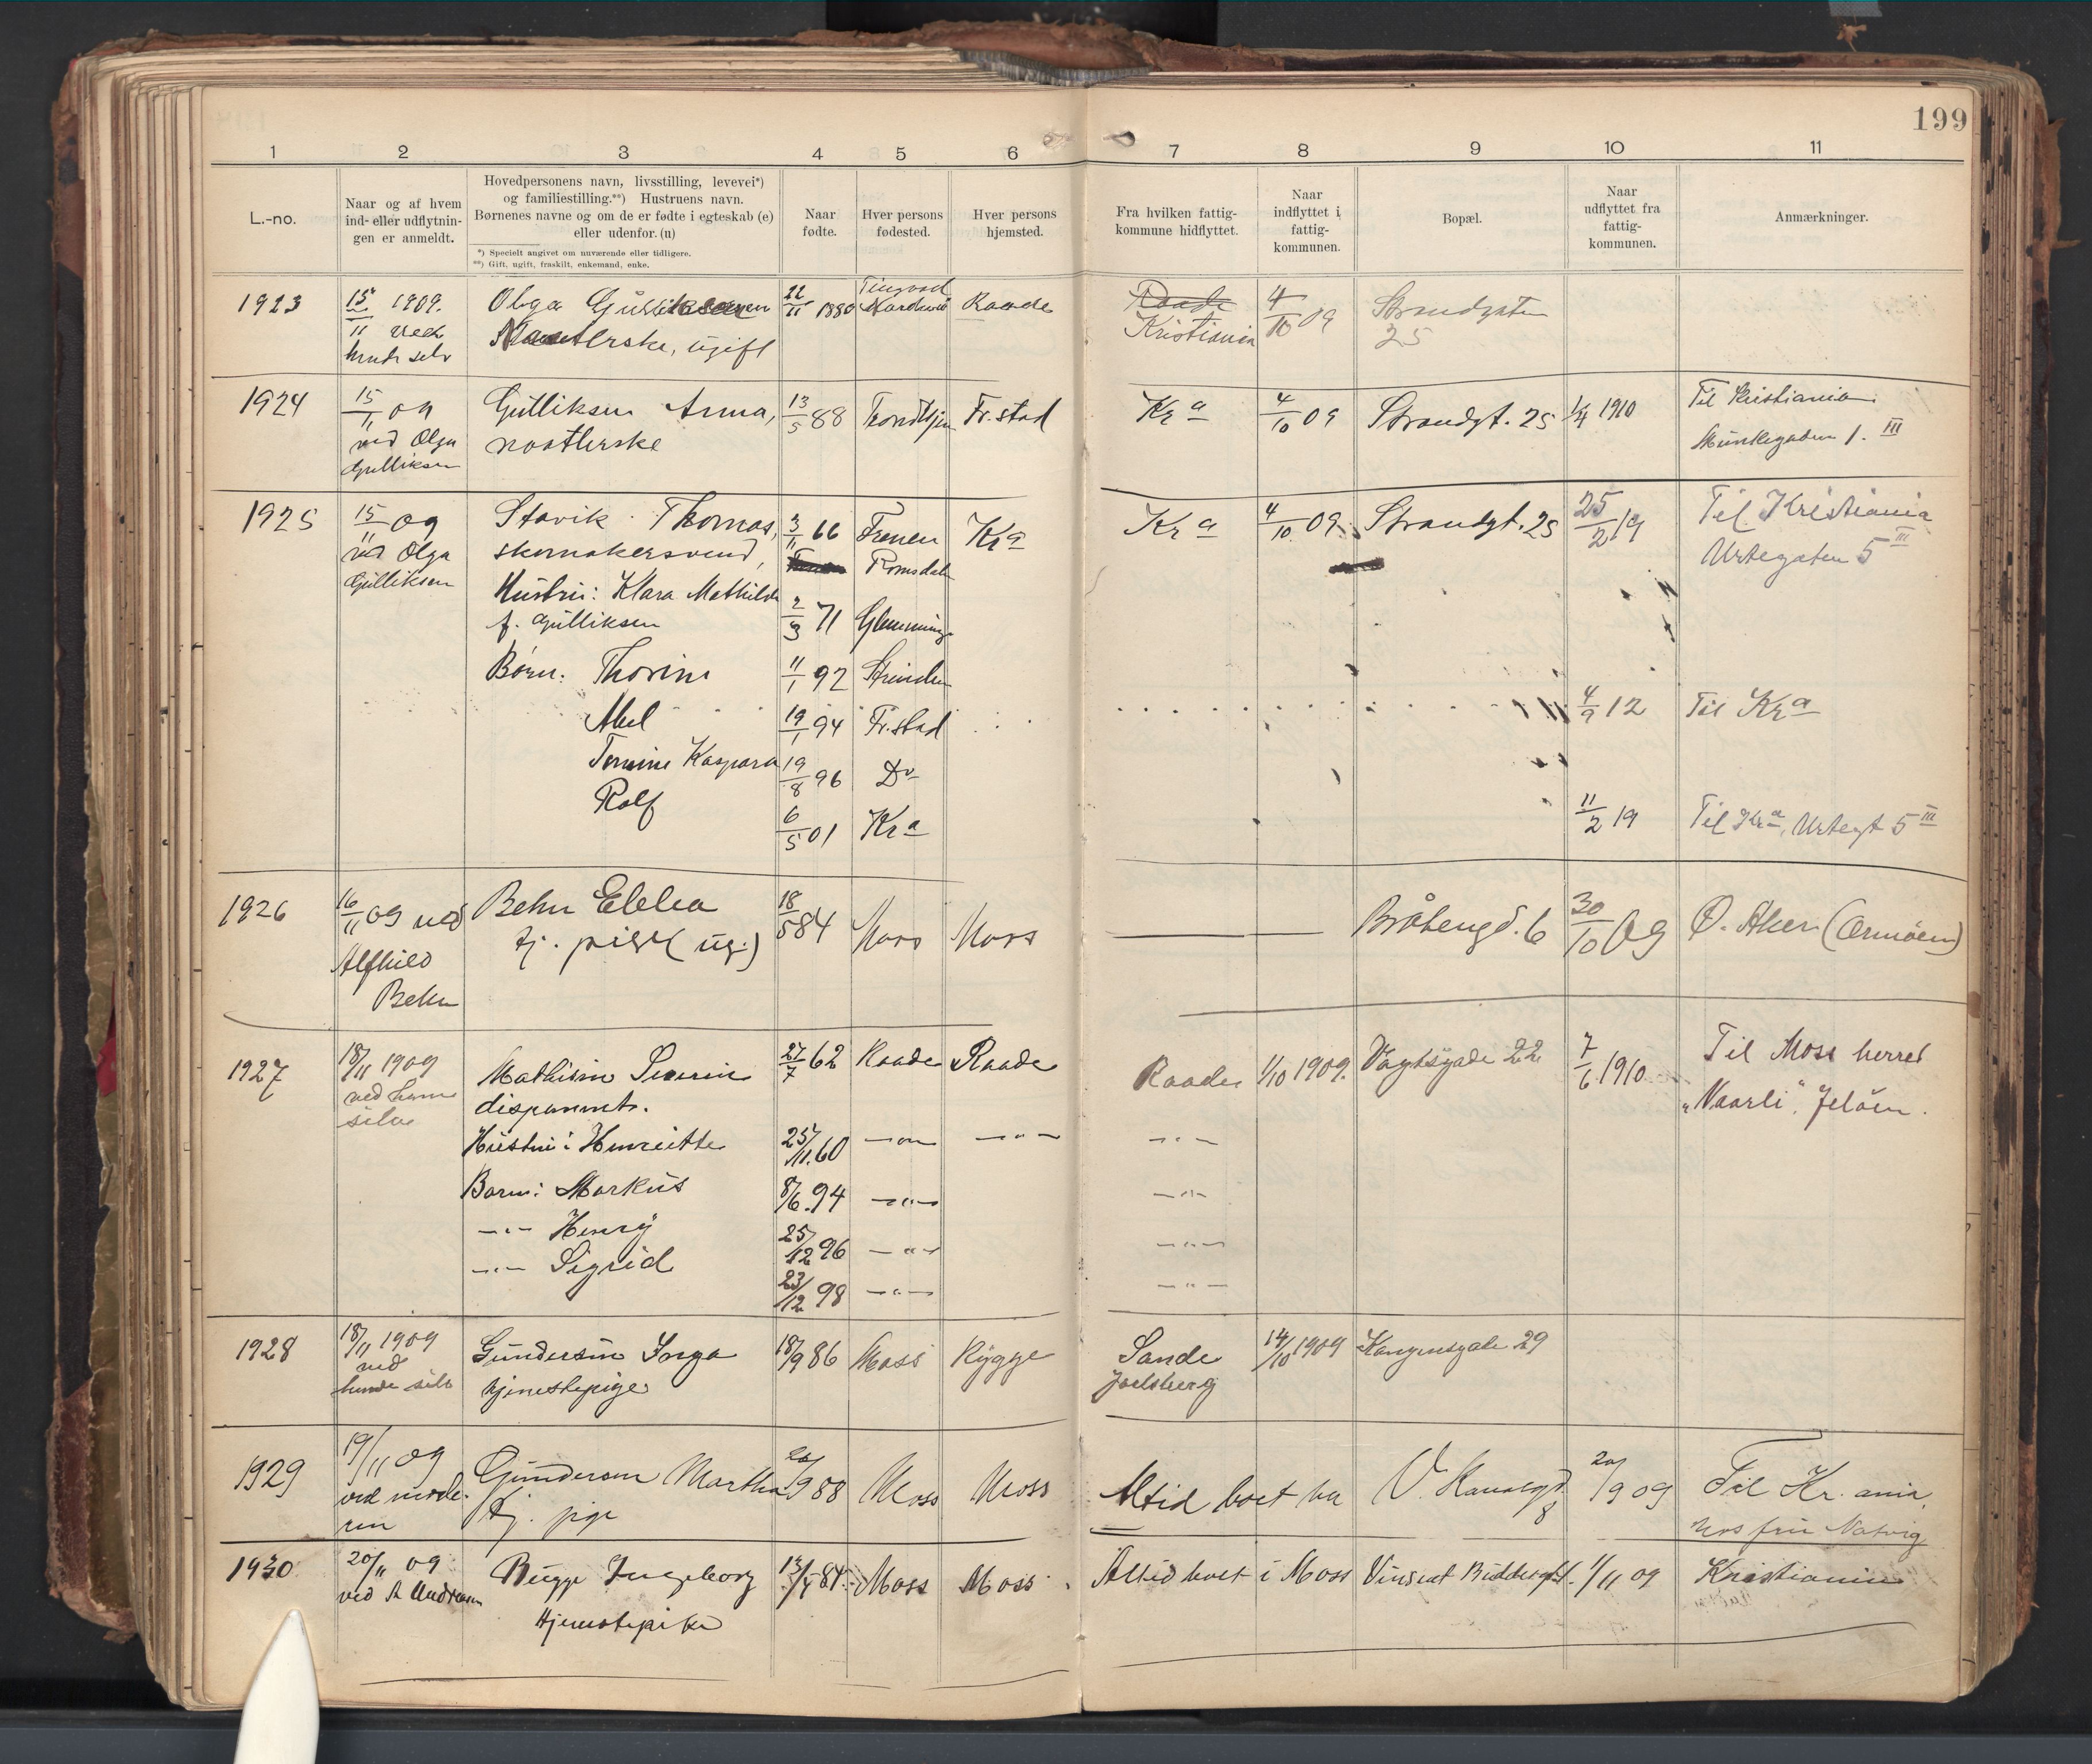 199
1 2 3 4 5 6 7 8 9 10 11
L.-no.
Naar og af hvem
ind- eller udflytnin-
gen er anmeldt.
Hovedpersonens navn, livsstilling, levevei*)
og familiestilling.**) Hustruens navn.
Børnenes navne og om de er fødte i egteskab (e)
eller udenfor. (u)
*) Specielt angivet om nuværende eller tidligere.
**) Gift, ugift, fraskilt, enkemand, enke.
Naar
fødte.
Hver persons
fødested.
Hver persons
hjemsted.
Fra hvilken fattig-
kommune hidflyttet.
Naar
indflyttet i
fattig-
kommunen.
Bopæl.
Naar
udflyttet fra
fattig-
kommunen.
Anmærkninger.
1923
15/11 1909.
ved
hende selv
Olga Gulliksen
ugift
22/11 1880
Tingvold
Nordmør
Raade
Raade
Kristiania
4/10 09
Strandgaten
25
1924
15/11 09
ved Olga
Gulliksen
Gulliksen Anna,
13/5 88
Trondhjem
Fr.stad
Kr a
4/10 09
Strandgt. 25
1/4 1910
Til Kristiania
Munkegaden 1. III
1925
15/11 09
ved Olga
Gulliksen
Stavik Thomas,
skomakersvend,
Hustru: Klara Mathilde
f. Gulliksen
Børn: Thorine
Abel
Tomine Kaspara
Rolf
3/11 66
2/3 71
11/1 92
19/1 94
19/8 96
6/5 01
Frenen
Romsdalen
Glemminge
Strinden
Fr.stad
Do
Kr a
Kr a
Kr a
4/10 09
Strandgt. 25
25/2 19
Til Kristiania
Urtegaten 5 III
4/9 12
Til Kr a
11/2 19
Til Kr a, Urtegt 5 III
1926
16/11 09 ved
Alfhild
Behn
Behn Ellea
tj. pige (ug.)
18/5 84
Moss
Moss
Bråtengd. 6
30/10 09
Ø. Aker (Ormöen)
1927
18/11 1909
ved ham
selv
Mathisen Severin
disponent.
Hustru: Henriette
Barn: Markus
-"- Henry
-"- Sigrid
27/7 62
25/11 60
8/6 94
25/12 96
23/12 98
Raade
-"-
-"-
-"-
-"-
Raade
-"-
Raade
-"-
-"-
-"-
-"-
1/10 1909.
Vogtsgade 22
7/6 1910
Til Moss herred
"Vaarli", Jeløen.
1928
18/11 1909
ved
hende selv
Gundersen Inga
tjenestepige
18/9 86
Moss
Rygge
Sande
Jarlsberg
14/10 1909
Kongensgade 29
1929
19/11 09
ved mode-
ren
Gundersen Martha
tj. pige
20/9 88
Moss
Moss
Altid boet her
V. Kanalgd.
8
20/9 09
Til Kr. ania,
hos fru Natvig
1930
20/11 09
ved A Andresen
Bugge Ingeborg
tjenestepike
84
Moss
Moss
Altid boet i Moss
1/11 09
Kristiania